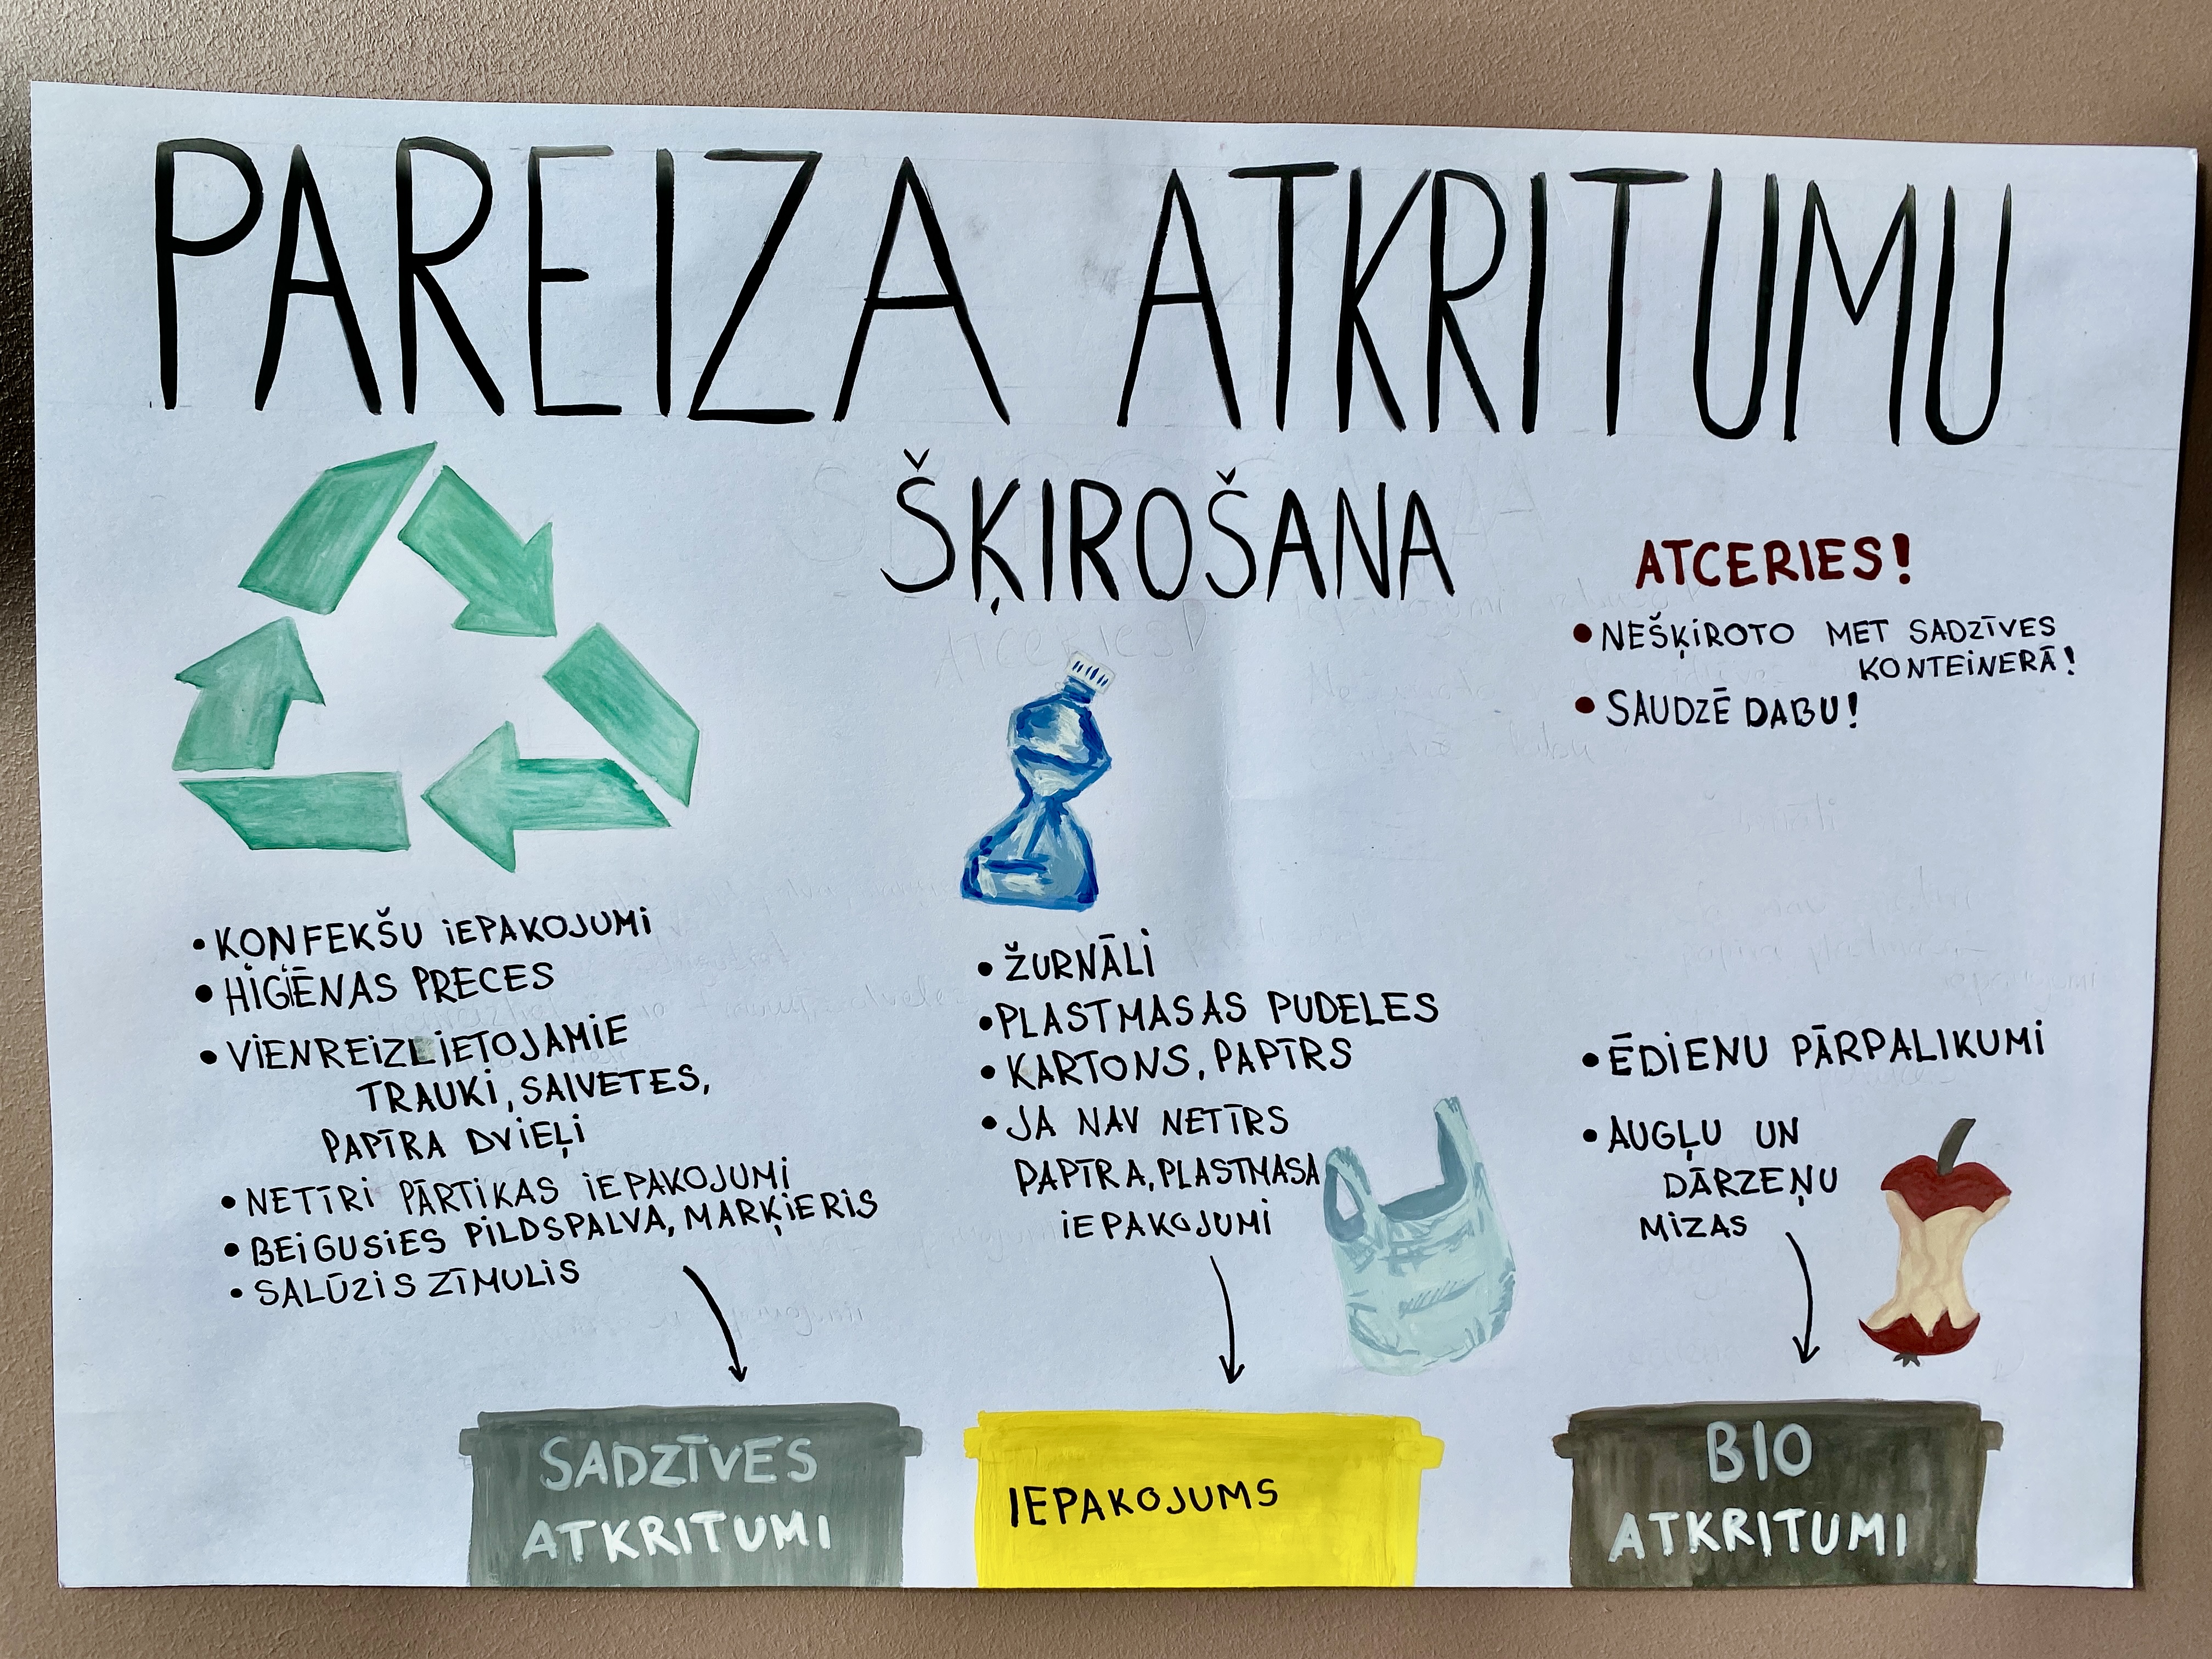 PAREIZA ATKRITUMU
ŠĶIROŠANA
ATCERIES!
• NEŠĶIROTO MET SADZĪVES
KONTEINERĀ!
• SAUDZĒ DABU!
• KOŅFEKŠU IEPAKOJUMI
• HIGIĒNAS PRECES
• VIENREIZLIETOJAMIE
TRAUKI, SALVETES,
PAPĪRA DVIEĻI
• NETĪRI PĀRTIKAS IEPAKOJUMI
• BEIGUSIES PILDSPALVA, MARĶIERIS
• SALŪZIS ZĪMULIS
SADZĪVES
ATKRITUMI
• ŽURNĀLI
• PLASTMASAS PUDELES
• KARTONS, PAPĪRS
• JA NAV NETĪRS
PAPĪRA, PLASTMASA
IEPAKOJUMI
IEPAKOJUMS
• ĒDIENU PĀRPALIKUMI
• AUGĻU UN
DĀRZEŅU
MIZAS
BIO
ATKRITUMI